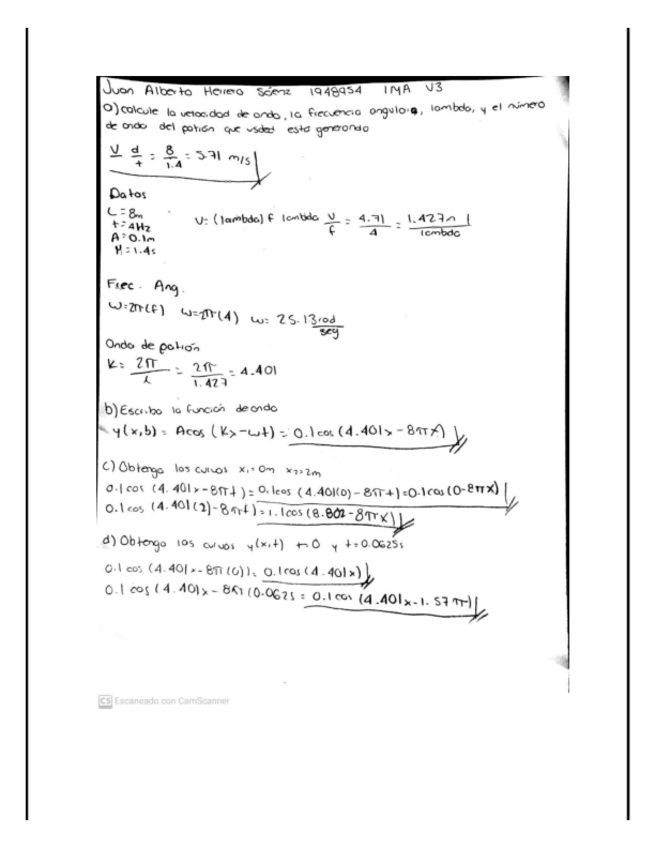 Juan Alberto Herrero Sáenz 1948954 IMA V3
a) calcule la velocidad de onda, la frecuencia angular, lambda, y el número
de onda del patrón que usded esta generando
V d/t = 8/1.4 = 5.71 m/s
Datos
L = 8m
t = 4Hz
A = 0.1m
M = 1.4s
V = (lambda) f lambda V/f = 4.71/4 = 1.427m lambda
Frec. Ang.
ω = 2π(f) ω = 2π(4) ω = 25.13 rad/seg
Onda de patrón
K = 2π/λ = 2π/1.427 = 4.401
b) Escriba la función de onda
y(x,b) = Acos (Kx-ωt) = 0.1 cos (4.401x - 8πX)
c) Obtenga las curvas x₁=0m x₂=2m
0.1 cos (4.401x-8πt) = 0.1cos (4.401(0) - 8πt) = 0.1cos (0-8πX)
0.1 cos (4.401(2)-8πt) = 1.1cos (8.802-8πX)
d) Obtenga las curvas y(x,t) t=0 y t=0.0625s
0.1 cos (4.401x-8π(0)) = 0.1 cos (4.401x)
0.1 cos (4.401x - 8π(0.0625 = 0.1 cos (4.401x-1.57π)
CS Escaneado con CamScanner